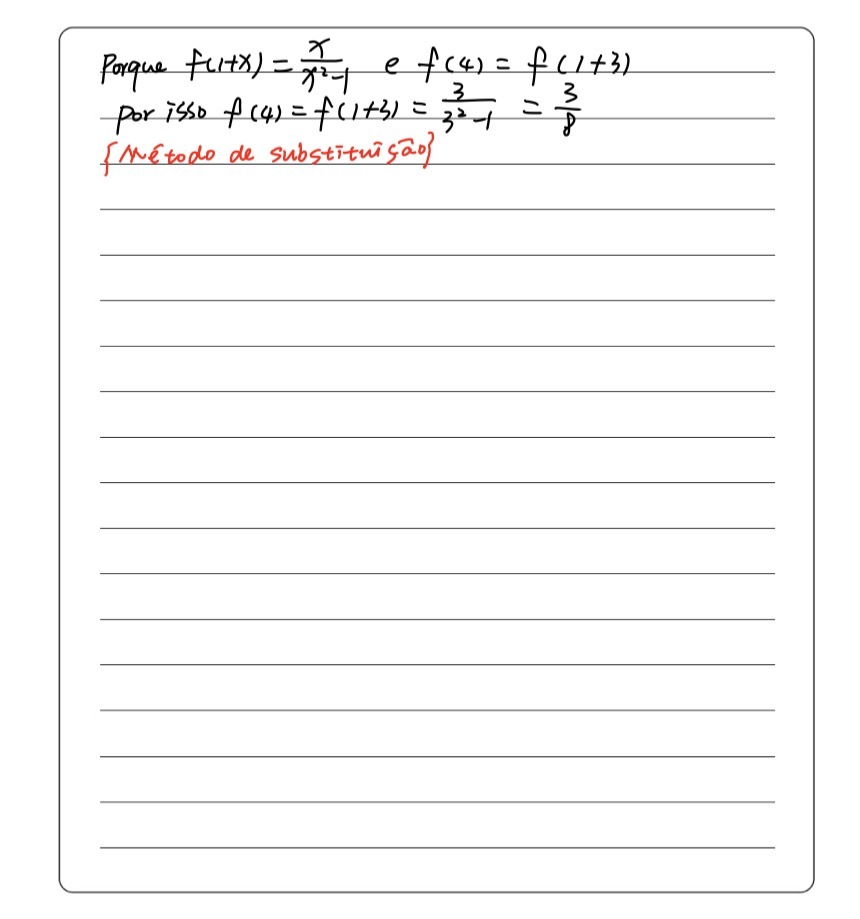 Porque f(1+x) = x/(x²-1) e f(4) = f(1+3)
por isso f(4) = f(1+3) = 3/(3²-1) = 3/8
{Método de substituição}